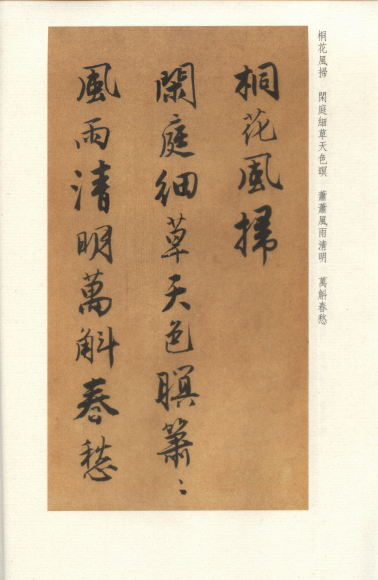 桐花風掃
閑庭細草天色暝蕭〻
風雨清明萬斛春愁
桐花風掃　閑庭細草天色暝　蕭蕭風雨清明　萬斛春愁